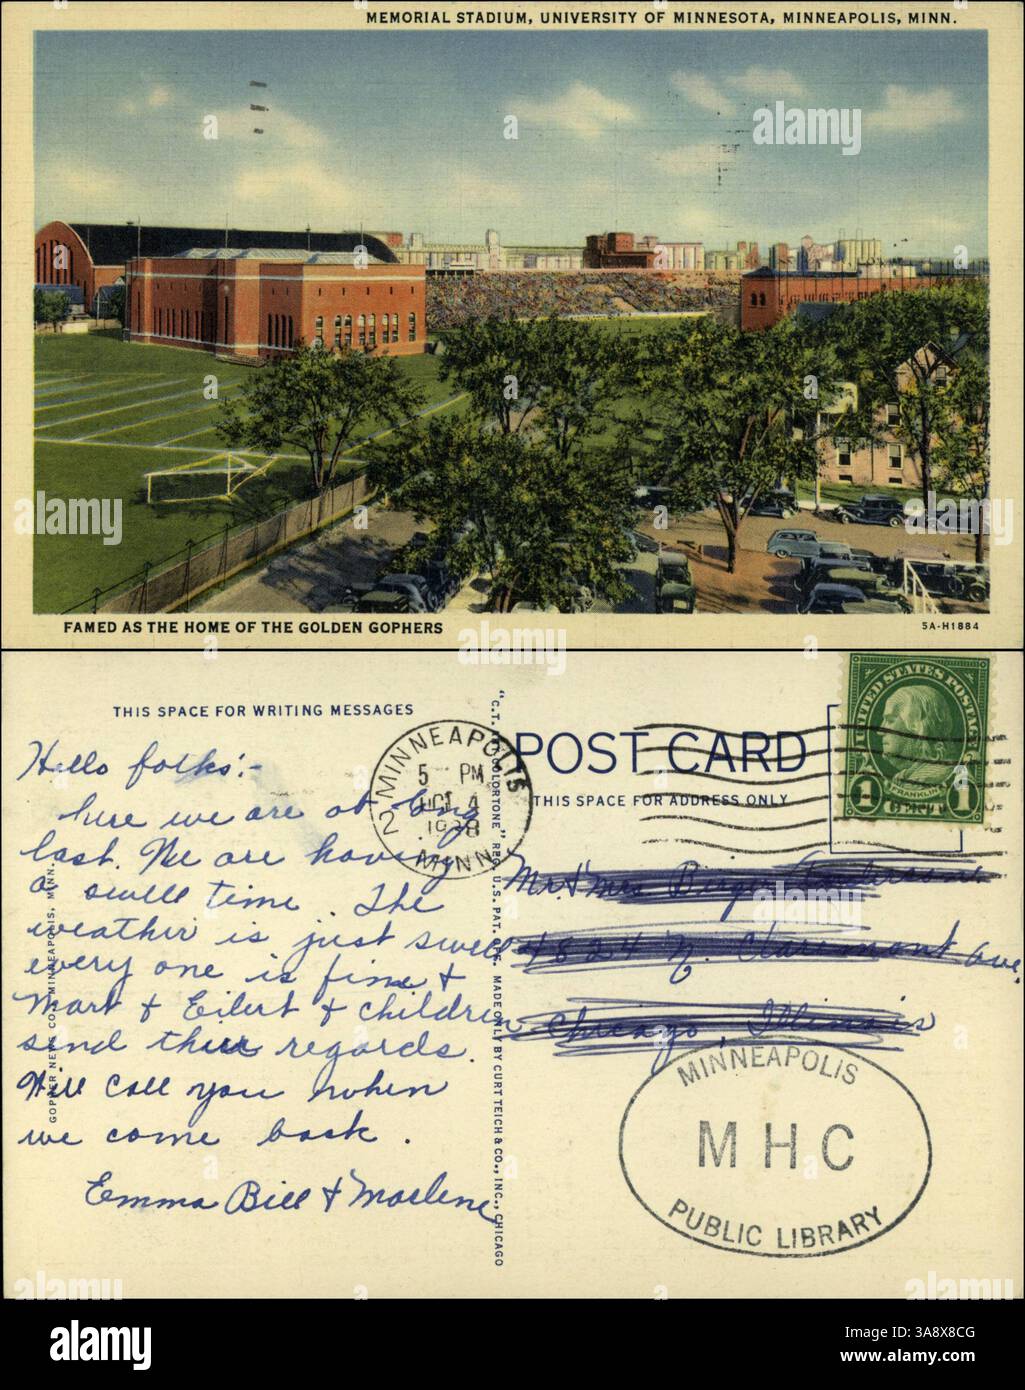 MEMORIAL STADIUM, UNIVERSITY OF MINNESOTA, MINNEAPOLIS, MINN.
FAMED AS THE HOME OF THE GOLDEN GOPHERS
5A-H1884
THIS SPACE FOR WRITING MESSAGES
Hello folks:-
here we are at long
last. We are having
a swell time. The
weather is just swell
every one is fine &
Mart & Eilert & children
send their regards.
Will call you when
we come back.
Emma Bill & Marlene
GOPHER NEWS CO., MINNEAPOLIS, MINN.
"C.T. COLORTONE" REG. U.S. PAT. OFF. MADE ONLY BY CURT TEICH & CO., INC., CHICAGO
MINNEAPOLIS 2
5 PM
OCT 4
1938
MINN
POST CARD
THIS SPACE FOR ADDRESS ONLY
UNITED STATES POSTAGE
FRANKLIN
1 CENT 1
Mr. & Mrs Birger
4824 N. Claremont ave.
Chicago, Illinois
MINNEAPOLIS
MHC
PUBLIC LIBRARY
alamy
Image ID: 3A8X8CG
www.alamy.com